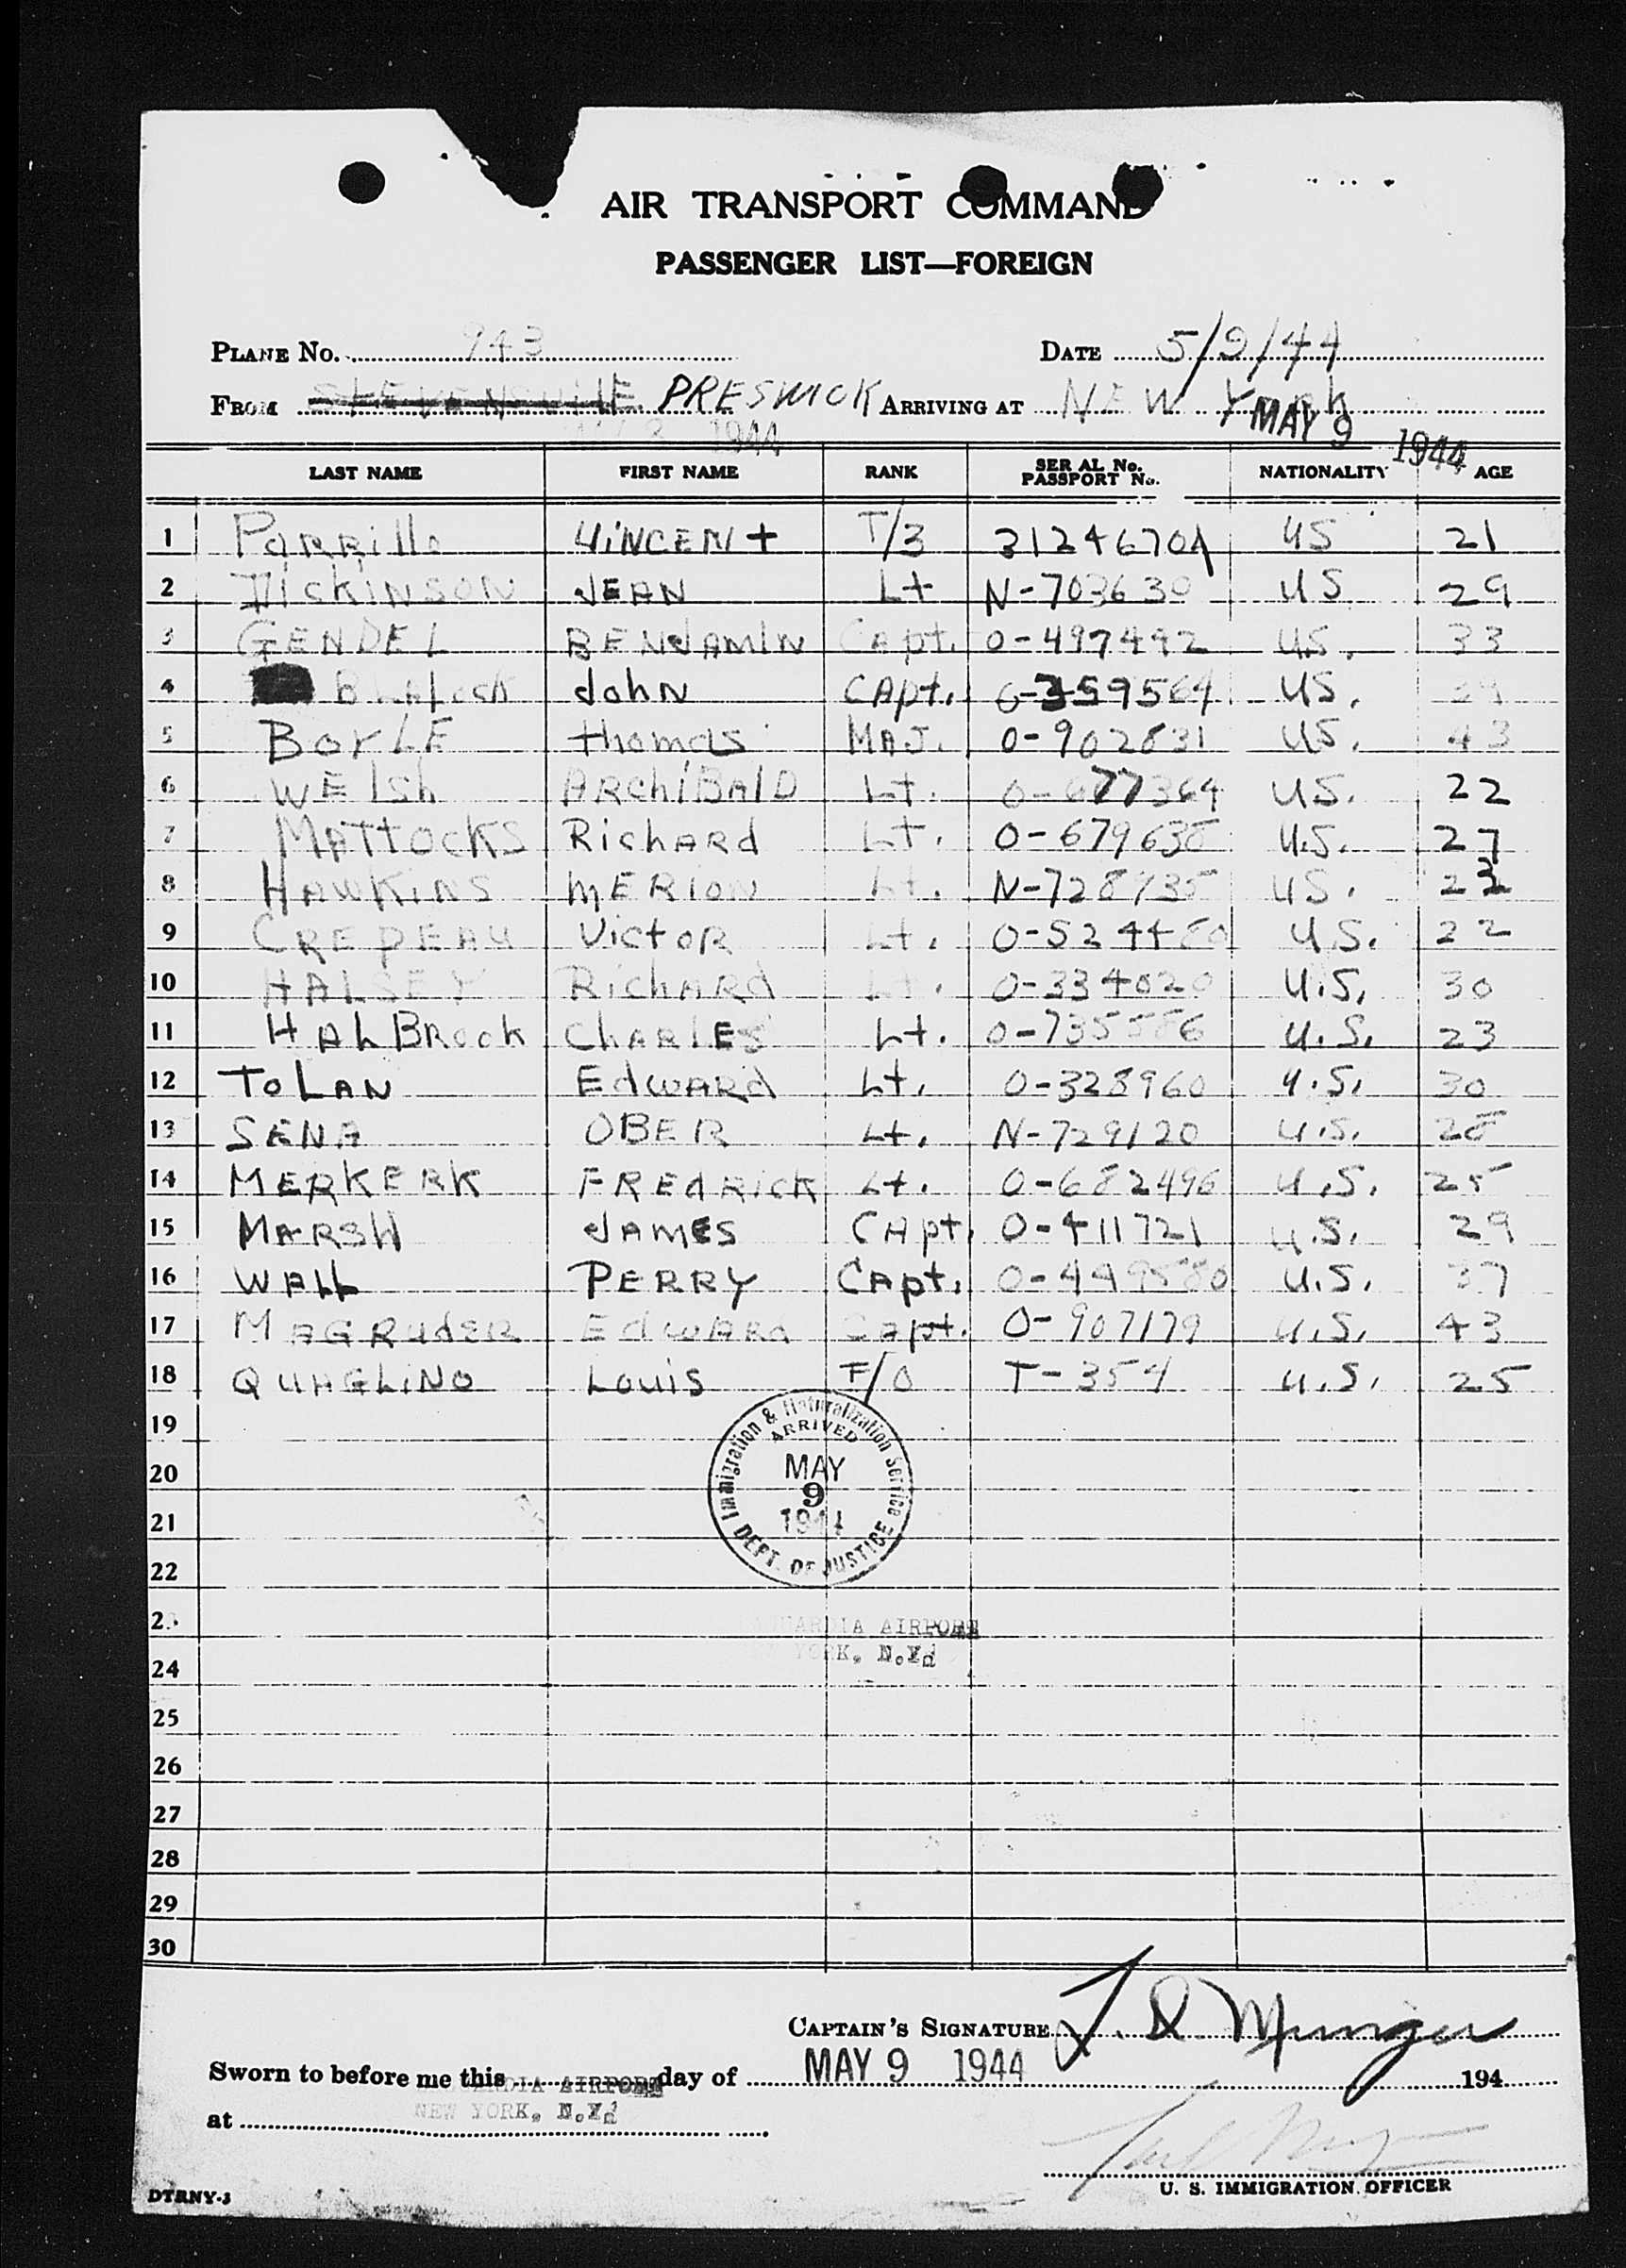 AIR TRANSPORT COMMAND
PASSENGER LIST—FOREIGN
PLANE No. 943 DATE 5/9/44
FROM PRESWICK ARRIVING AT NEW York
1944 MAY 9 1944
LAST NAME FIRST NAME RANK SERIAL No. PASSPORT No. NATIONALITY AGE
1 Parrillo VINCENt T/3 31246704 US 21
2 DICKINSON JEAN Lt N-703630 US 29
3 GENDEL BENJAMIN Capt. 0-497492 US. 33
4 John CApt. 0-359564 US.
5 BOYLE thomas MAJ. 0-902831 US. 43
6 WElsh ARchiBAlD Lt. 0-677364 US. 22
7 MAttocKS RichARd Lt. 0-679638 U.S. 27
8 HAWKINS MERION Lt. N-728935 US.
9 CREPEAU VictoR Lt. 0-524480 U.S. 22
10 HALSEY RichARd Lt. 0-334020 U.S. 30
11 HALBRook CHARLES Lt. 0-735556 U.S. 23
12 ToLAN EdWARd Lt. 0-328960 U.S. 30
13 SENA OBER Lt. N-729120 U.S. 28
14 MERKERK FREdRicK Lt. 0-682496 U.S. 25
15 MARSH JAMES CApt. 0-411721 U.S. 29
16 WALL PERRY CApt. 0-449580 U.S. 37
17 MAGRudER EdWARd Capt. 0-907179 U.S. 43
18 QUAGLiNO Louis F/O T-354 U.S. 25
19
Immigration & Naturalization Service
ARRIVED
20
MAY
9
21
1944
DEPT. OF JUSTICE
22
23
AIRPORT
YORK, N.Y.
24
25
26
27
28
29
30
CAPTAIN'S SIGNATURE L. D. Munger
Sworn to before me this AIRPORT day of MAY 9 1944 194
at NEW YORK, N.Y.
U. S. IMMIGRATION OFFICER
DTRNY-3